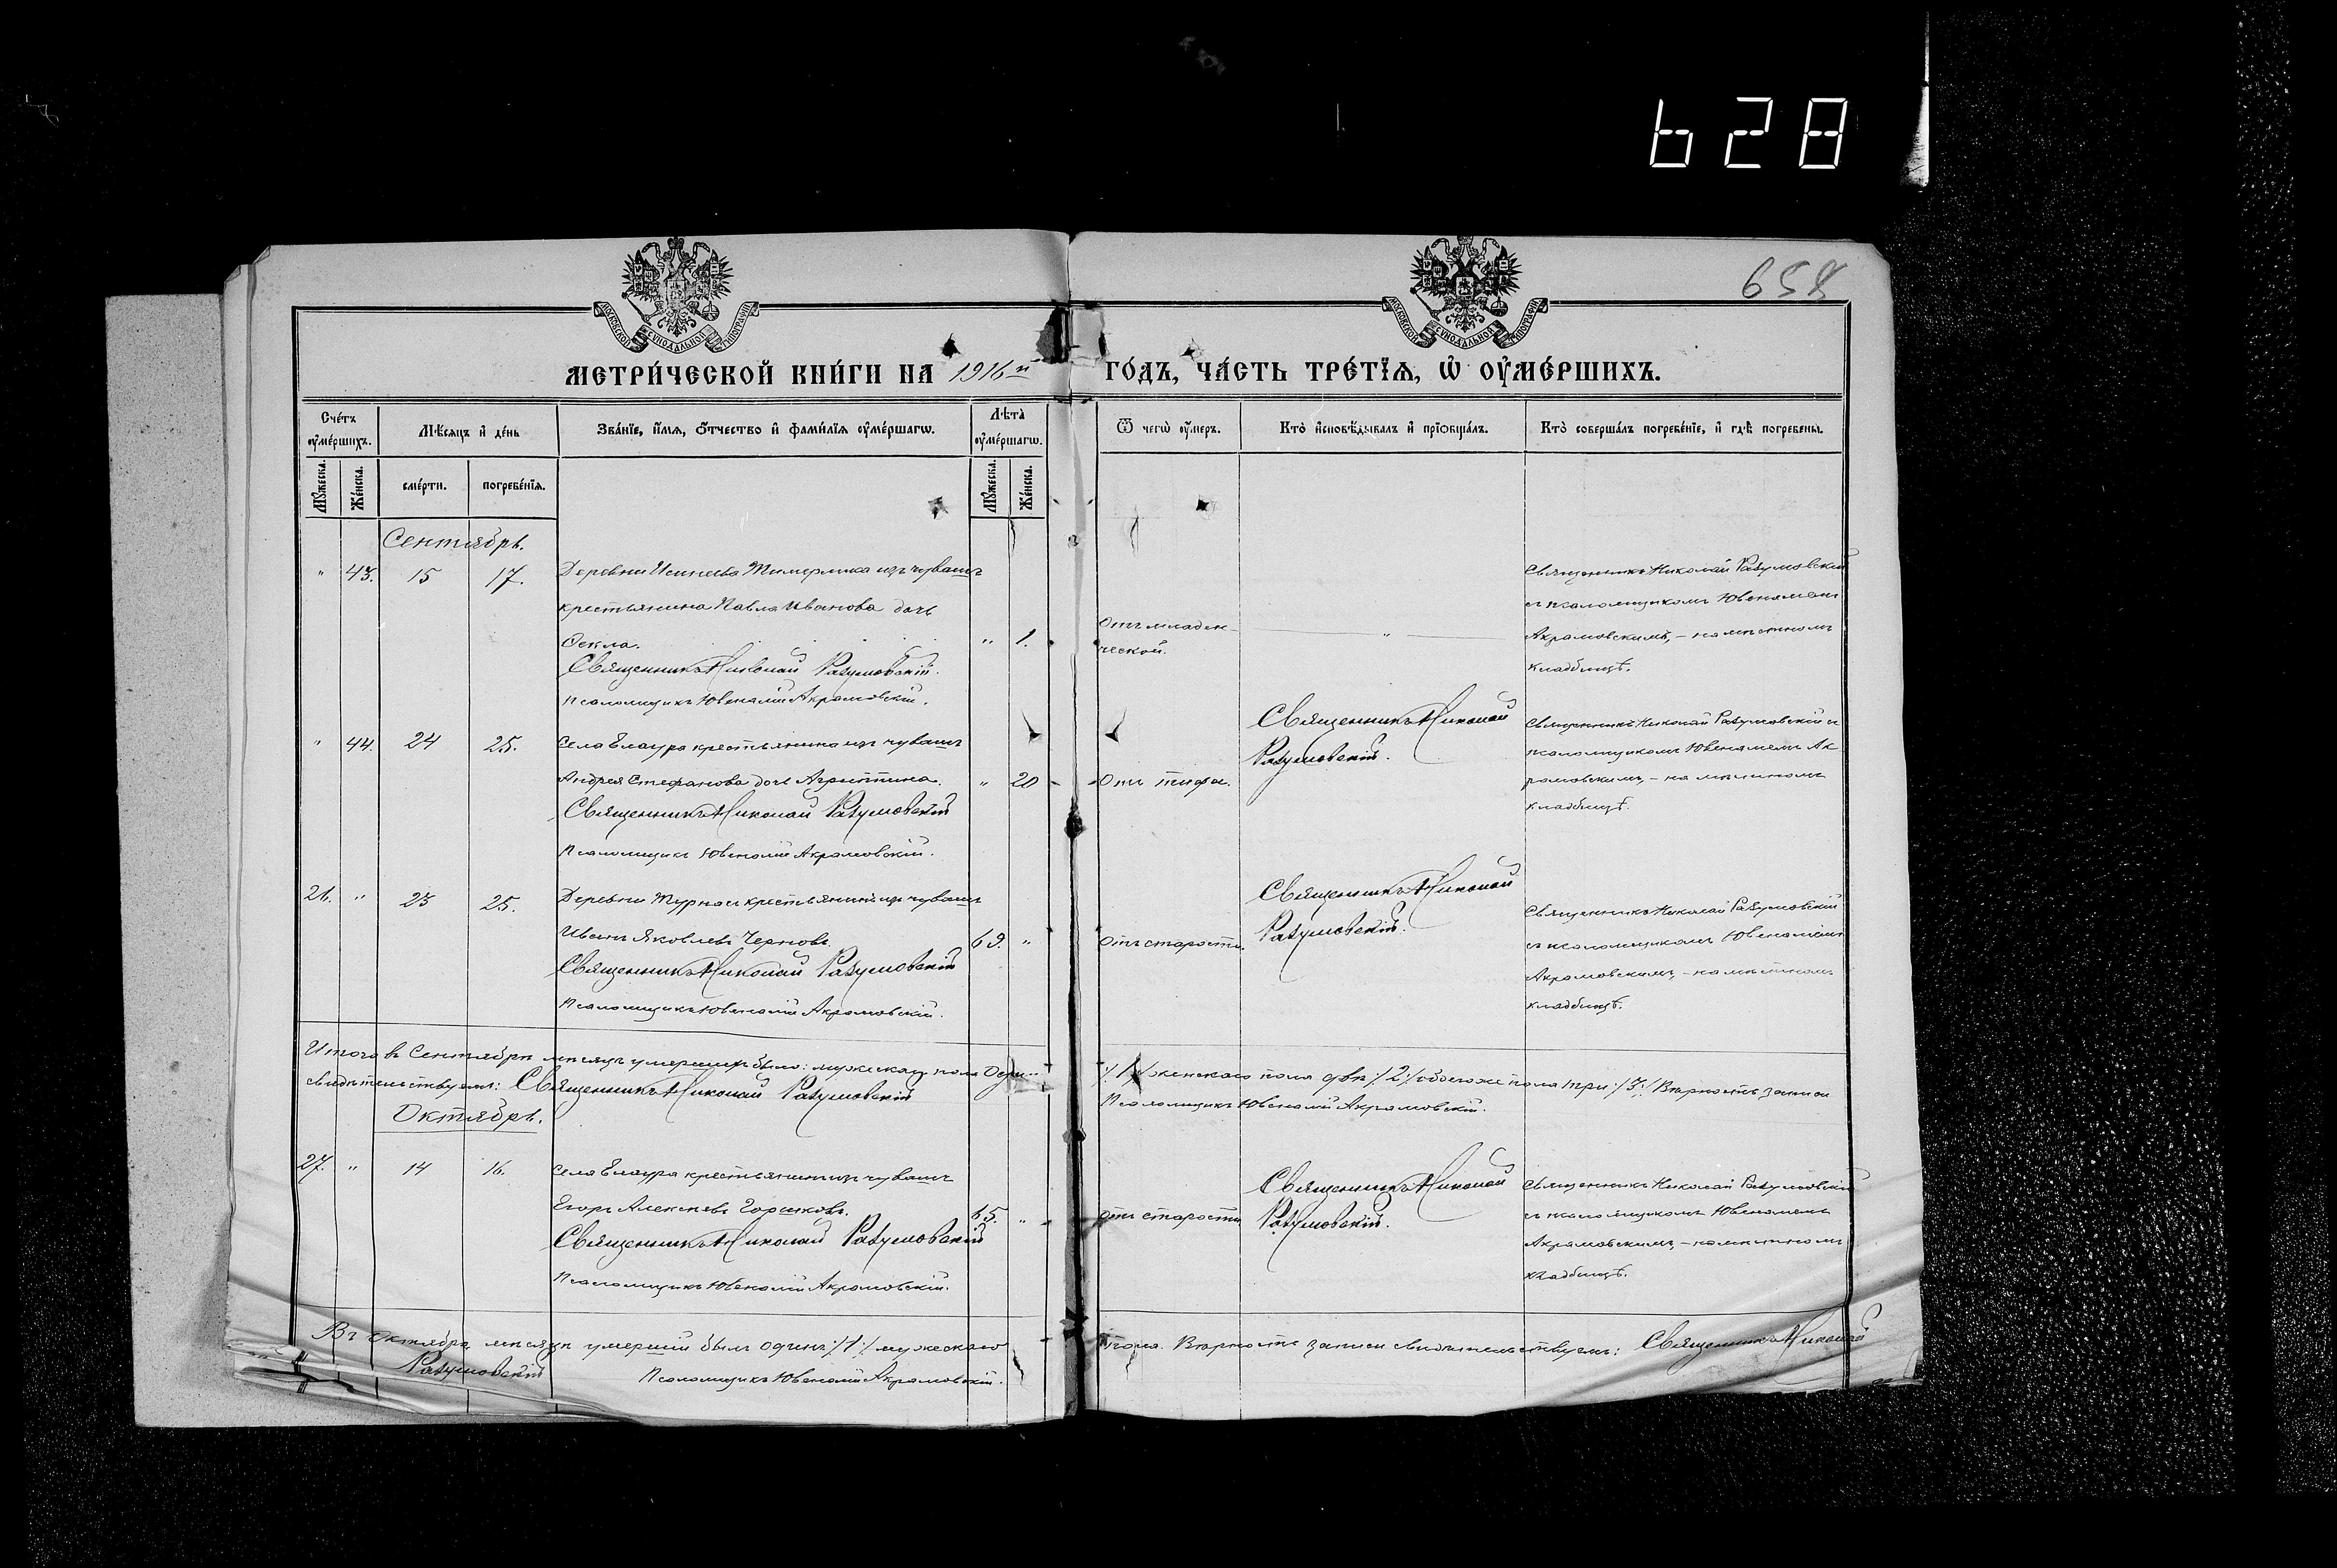 628
658
МОСКОВСКОЙ СѴНОДАЛЬНОЙ ТИПОГРАФІИ
МОСКОВСКОЙ СѴНОДАЛЬНОЙ ТИПОГРАФІИ
МЕТРИ́ЧЕСКОЙ КНИ́ГИ НА 1916й ГО́ДЪ, ЧА́СТЬ ТРЕ́ТІѦ, Ѡ҆ ОУ҆МЕ́РШИХЪ.
Сче́тъ оу҆ме́ршихъ.
Мѣ́сяцъ и҆ де́нь
Зва́нїе, и҆́мѧ, о҆́тчество и҆ фами́лїѧ оу҆ме́ршагѡ.
Лѣ́та оу҆ме́ршагѡ.
Ѿ чегѡ̀ оу҆́меръ.
Кто̀ и҆сповѣ́дывалъ и҆ прїѡбща́лъ.
Кто̀ соверша́лъ погребе́нїе, и҆ гдѣ̀ погребены̀.
Мꙋ́жеска.
Же́нска.
сме́рти.
погребе́нїѧ.
Мꙋ́жеска.
Же́нска.
Сентябрь.
" 43. 15 17. Деревни Исинеева Тимерлика изъ чувашъ
крестьянина Павла Иванова дочь
Ѳекла. " 1.
Священникъ Николай Разумовскій.
Псаломщикъ Ювеналій Акрамовскій.
Отъ младен-
ческой.
"
Священникъ Николай Разумовскій
съ псаломщикомъ Ювеналіемъ
Акрамовскимъ, – на мѣстномъ
кладбищѣ.
" 44. 24 25. Села Елаура крестьянина изъ чувашъ
Андрея Стефанова дочь Агриппина. " 20
Священникъ Николай Разумовскій
Псаломщикъ Ювеналій Акрамовскій.
Отъ тифа.
Священникъ Николай
Разумовскій.
Священникъ Николай Разумовскій съ
псаломщикомъ Ювеналіемъ Ак-
рамовскимъ, – на мѣстномъ
кладбищѣ.
26. " 23 25. Деревни крестьянинъ изъ чувашъ
Иванъ Яковлевъ Черновъ. 69. "
Священникъ Николай Разумовскій
Псаломщикъ Ювеналій Акрамовскій.
Отъ старости.
Священникъ Николай
Разумовскій.
Священникъ Николай Разумовскій
съ псаломщикомъ Ювеналіемъ
Акрамовскимъ, – на мѣстномъ
кладбищѣ.
Итого въ Сентябрѣ мѣсяцѣ умершихъ было: мужскаго пола
/:1:/ женскаго пола двѣ /:2:/ обоего же пола три /:3:/ Вѣрность записи
свидѣтельствуемъ: Священникъ Николай Разумовскій
Псаломщикъ Ювеналій Акрамовскій.
Октябрь.
27. " 14 16. Села Елаура крестьянинъ изъ чувашъ
Егоръ Алексѣевъ Горшковъ. 65. "
Священникъ Николай Разумовскій
Псаломщикъ Ювеналій Акрамовскій.
Отъ старости
Священникъ Николай
Разумовскій.
Священникъ Николай Разумовскій
съ псаломщикомъ Ювеналіемъ
Акрамовскимъ, – на мѣстномъ
кладбищѣ.
Въ Октябрѣ мѣсяцѣ умершій былъ одинъ /:1:/ мужескаго
пола. Вѣрность записи свидѣтельствуемъ: Священникъ Николай
Разумовскій Псаломщикъ Ювеналій Акрамовскій.